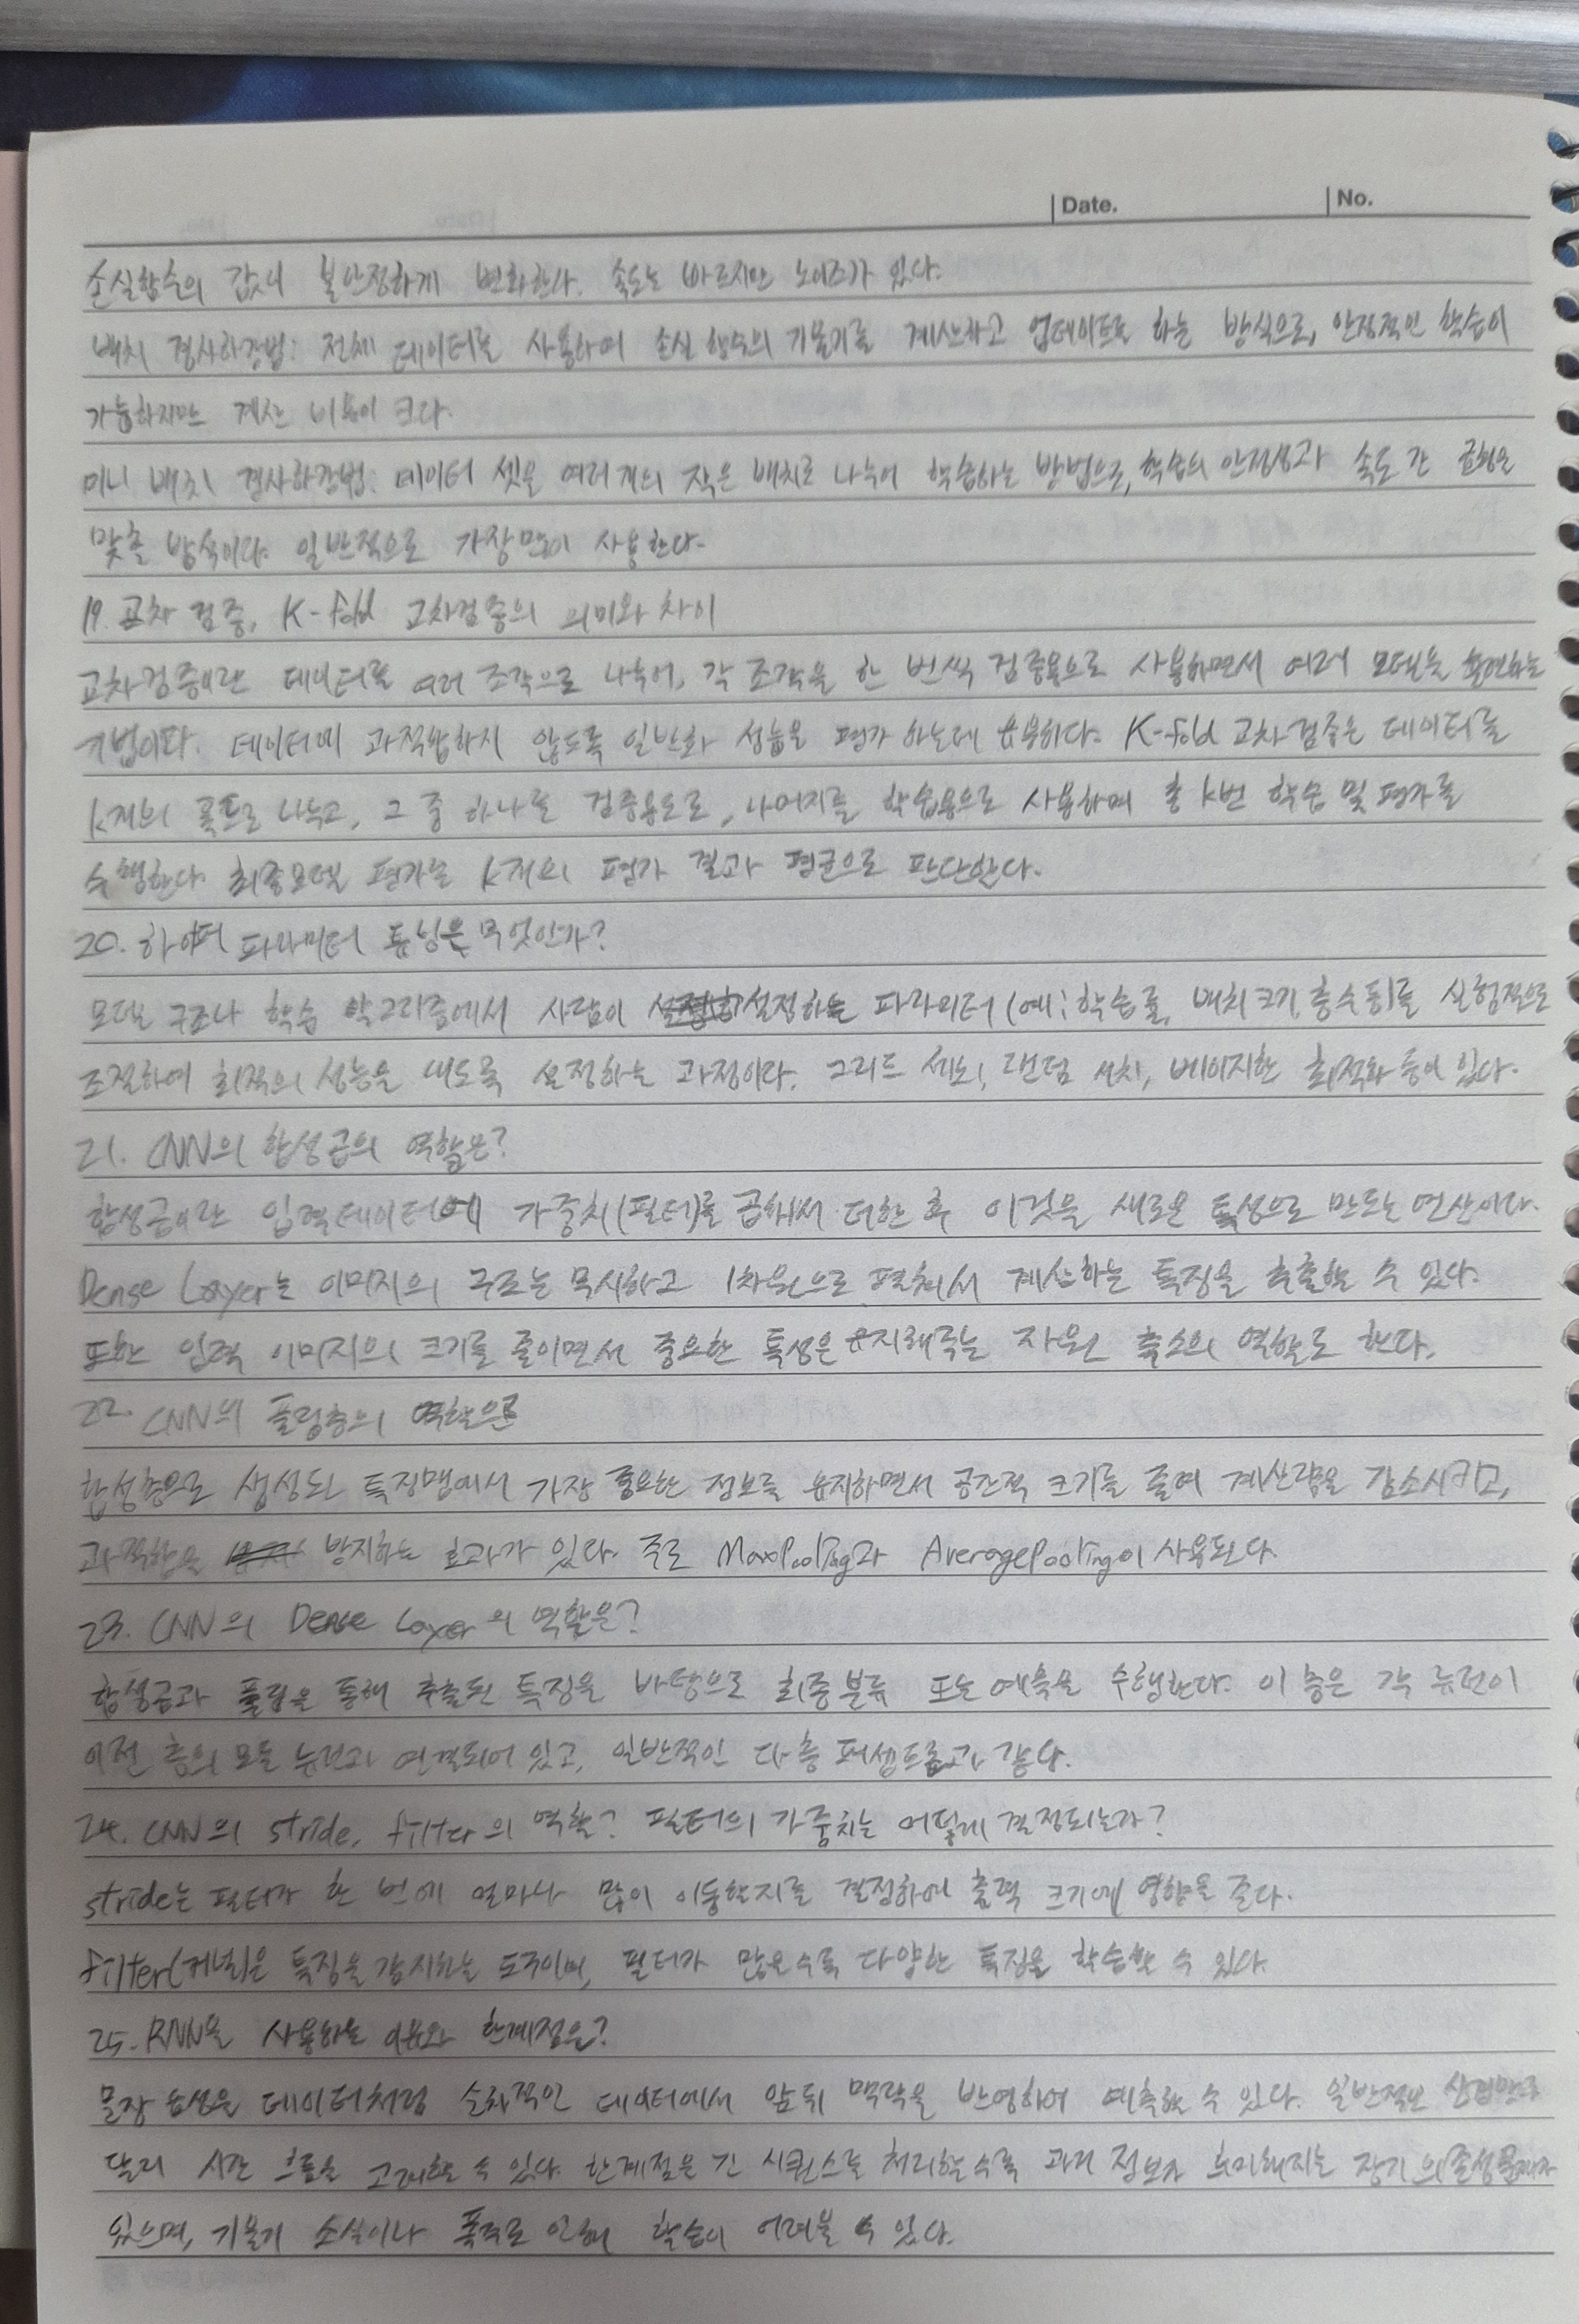 Date. No.
손실함수의 값이 불안정하게 변화한다. 속도는 빠르지만 노이즈가 있다.
배치 경사하강법: 전체 데이터를 사용하여 손실 함수의 기울기를 계산하고 업데이트를 하는 방식으로, 안정적인 학습이
가능하지만 계산 비용이 크다.
미니 배치 경사하강법: 데이터 셋을 여러개의 작은 배치로 나누어 학습하는 방법으로, 학습의 안정성과 속도 간 균형을
맞춘 방식이다. 일반적으로 가장많이 사용한다.
19. 교차 검증, K-fold 교차검증의 의미와 차이
교차검증이란 데이터를 여러 조각으로 나누어, 각 조각을 한 번씩 검증용으로 사용하면서 여러 모델을 훈련하는
기법이다. 데이터에 과적합하지 않도록 일반화 성능을 평가 하는데 유용하다. K-fold 교차검증은 데이터를
k개의 폴드로 나누고, 그 중 하나를 검증용도로, 나머지를 학습용으로 사용하며 총 k번 학습 및 평가를
수행한다. 최종모델 평가는 k개의 평가 결과 평균으로 판단한다.
20. 하이퍼 파라미터 튜닝은 무엇인가?
모델 구조나 학습 알고리즘에서 사람이 설정하는 파라미터(예: 학습률, 배치크기, 층수 등)를 실험적으로
조절하여 최적의 성능을 내도록 설정하는 과정이다. 그리드 서치, 랜덤 서치, 베이지안 최적화 등이 있다.
21. CNN의 합성곱의 역할은?
합성곱이란 입력데이터에 가중치(필터)를 곱해서 더한 후 이것을 새로운 특성으로 만드는 연산이다.
Dense Layer는 이미지의 구조는 무시하고 1차원으로 펼쳐서 계산하는 특징을 추출할 수 있다.
또한 입력 이미지의 크기를 줄이면서 중요한 특성은 유지해주는 차원 축소의 역할도 한다.
22. CNN의 풀링층의 역할은?
합성층으로 생성된 특징맵에서 가장 중요한 정보를 유지하면서 공간적 크기를 줄여 계산량을 감소시키고,
과적합을 방지하는 효과가 있다. 주로 MaxPooling과 AveragePooling이 사용된다.
23. CNN의 Dense Layer의 역할은?
합성곱과 풀링을 통해 추출된 특징을 바탕으로 최종분류 또는 예측을 수행한다. 이 층은 각 뉴런이
이전 층의 모든 뉴런과 연결되어 있고, 일반적인 다층 퍼셉트론과 같다.
24. CNN의 stride, filter의 역할? 필터의 가중치는 어떻게 결정되는가?
stride는 필터가 한 번에 얼마나 많이 이동할지를 결정하여 출력 크기에 영향을 준다.
Filter(커널)은 특징을 감지하는 도구이며, 필터가 많을수록 다양한 특징을 학습할 수 있다.
25. RNN을 사용하는 이유와 한계점은?
문장 음성은 데이터처럼 순차적인 데이터에서 앞뒤 맥락을 반영하여 예측할 수 있다. 일반적인
달리 시간 흐름을 고려할 수 있다. 한계점은 긴 시퀀스를 처리할수록 과거 정보가 희미해지는 장기 의존성 문제가
있으며, 기울기 소실이나 폭주로 인해 학습이 어려울 수 있다.